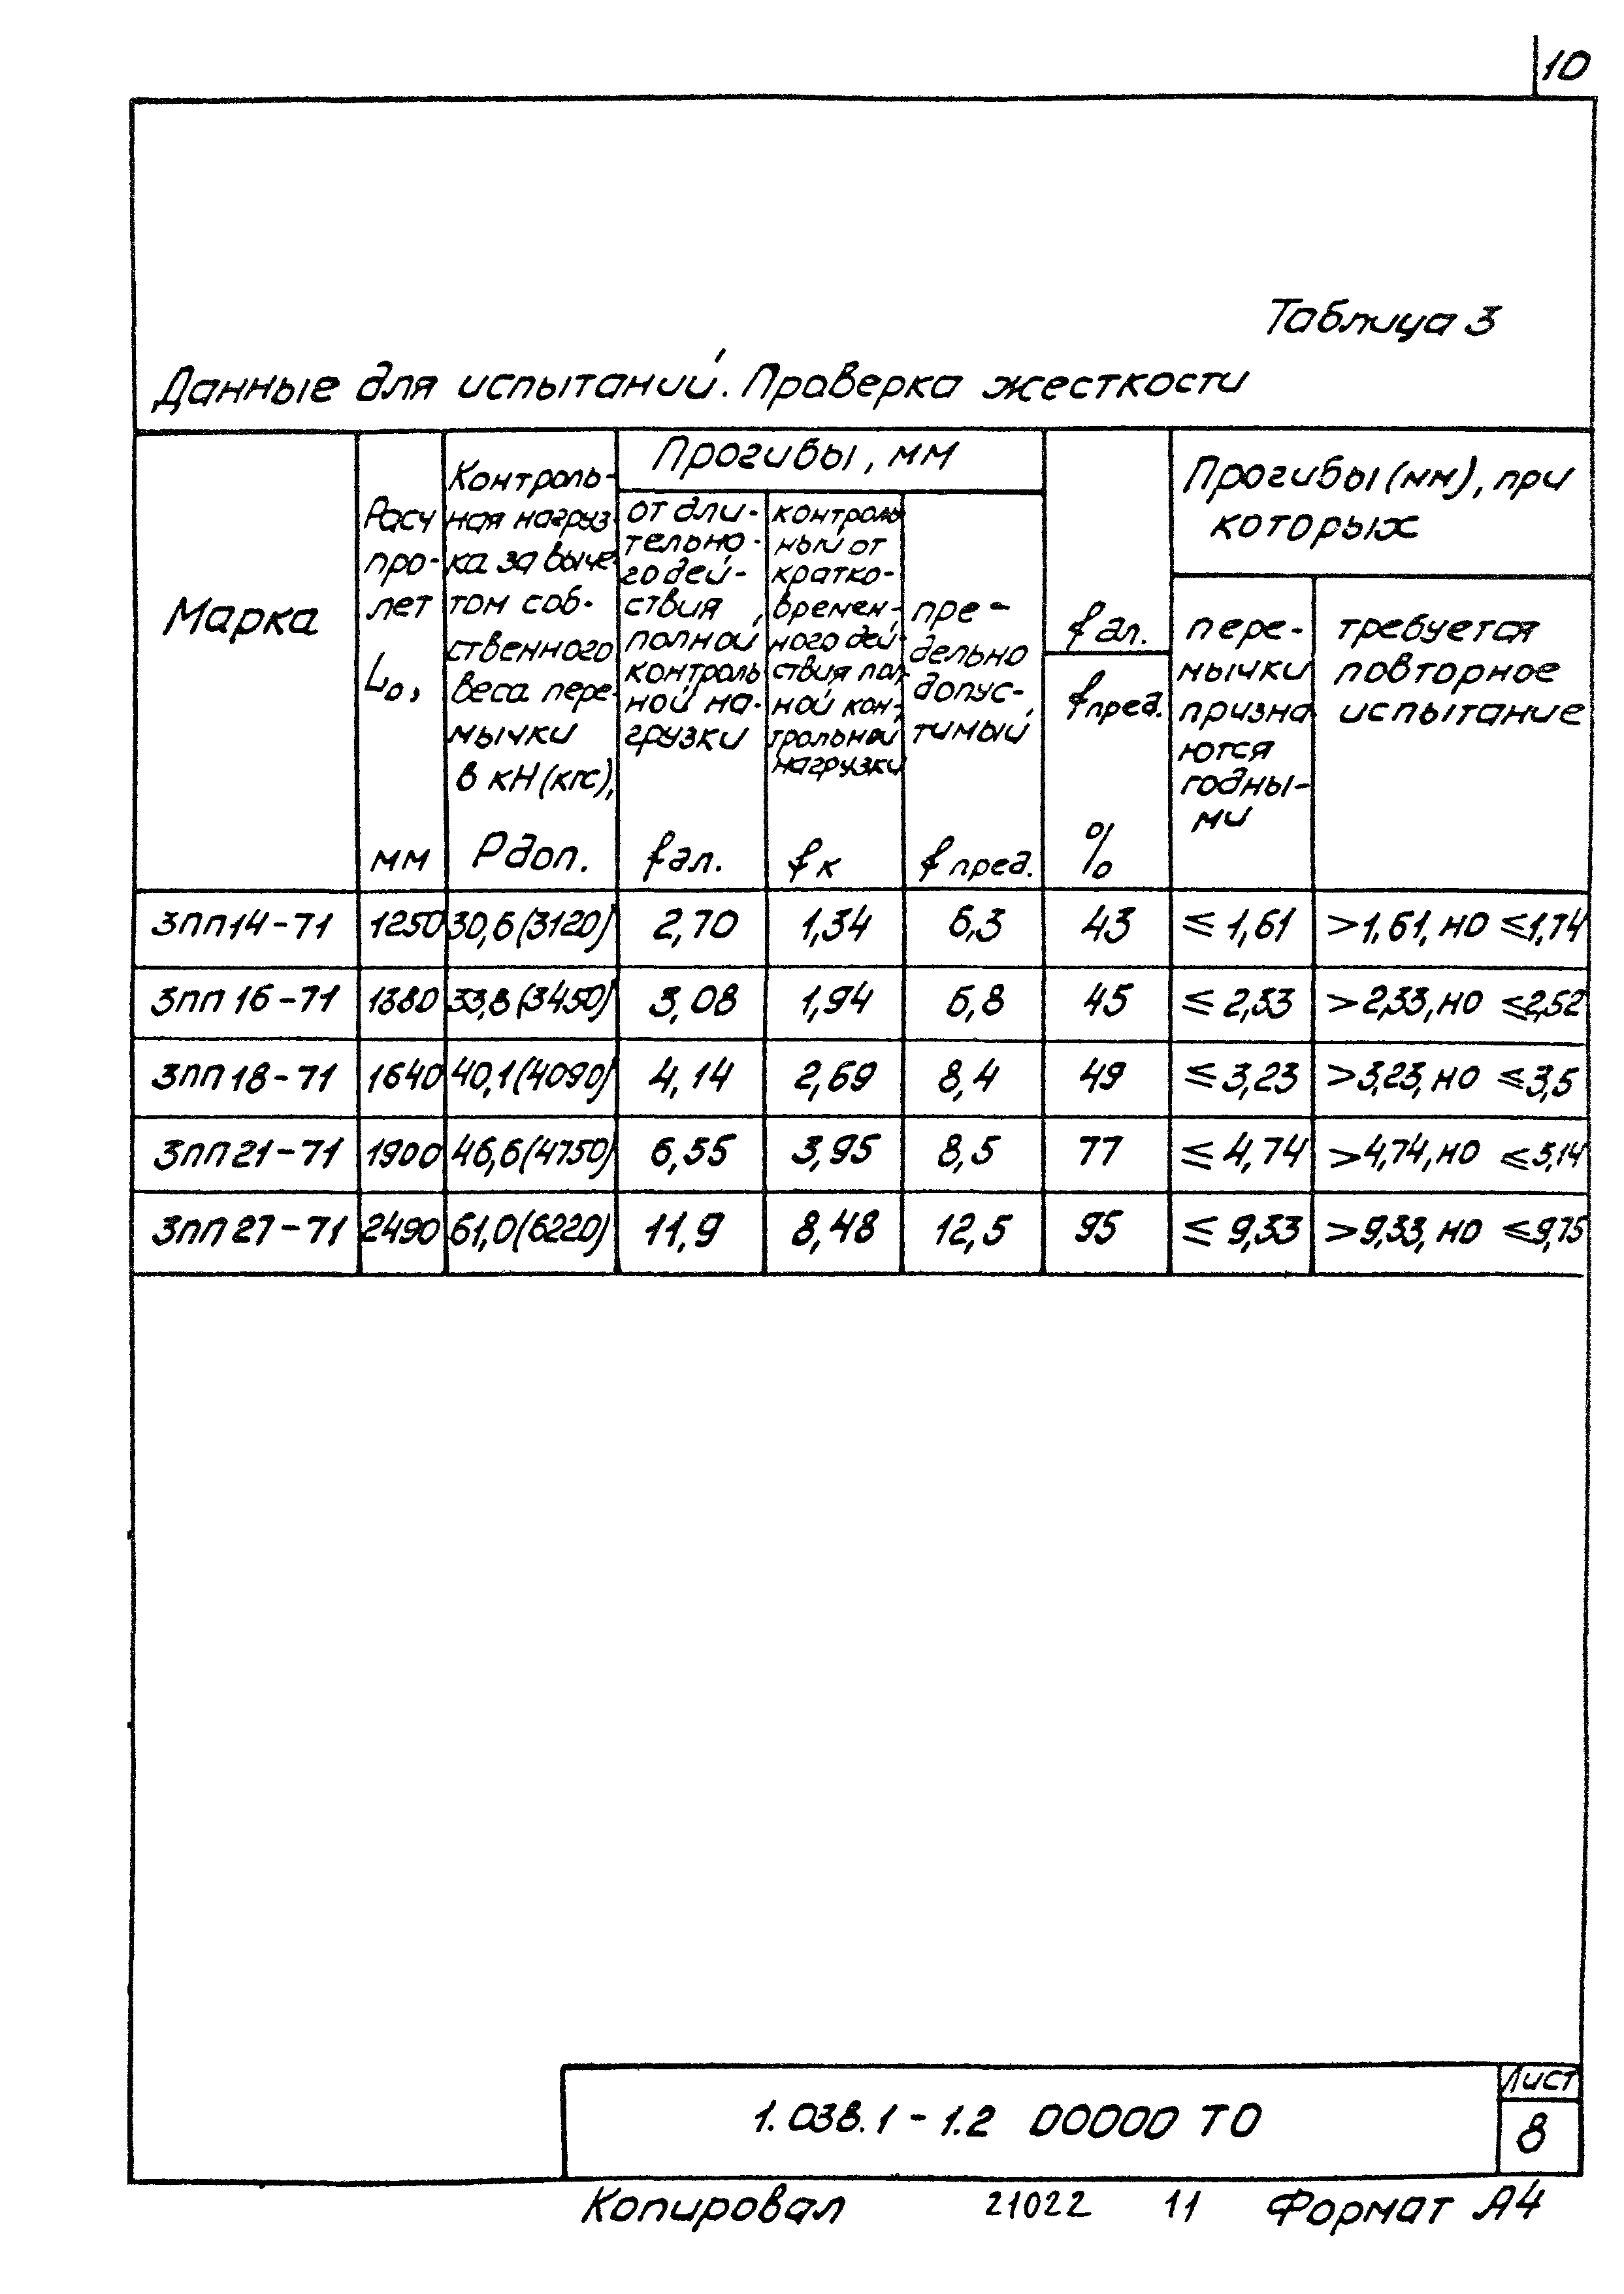 10
Таблица 3
Данные для испытаний. Проверка жесткости
Марка
Расч
про-
лет
L₀,
мм
Контроль-
ная нагруз-
ка за выче-
том соб-
ственного
веса пере-
мычки
в кН (кгс),
Pдоп.
Прогибы, мм
от дли-
тельно-
го дей-
ствия
полной
контроль
ной на-
грузки
fдл.
контроль
ный от
кратко-
времен-
ного дей-
ствия пол-
ной кон-
трольной
нагрузки
fк
пре-
дельно
допус-
тимый
fпред.
fдл.
fпред.
%
Прогибы (мм), при
которых
пере-
мычки
призна-
ются
годны-
ми
требуется
повторное
испытание
3пп14-71 1250 30,6(3120) 2,70 1,34 6,3 43 ≤ 1,61 >1,61, но ≤1,74
3пп 16-71 1380 33,8(3450) 3,08 1,94 6,8 45 ≤ 2,33 >2,33, но ≤2,52
3пп 18-71 1640 40,1(4090) 4,14 2,69 8,4 49 ≤ 3,23 >3,23, но ≤3,5
3пп 21-71 1900 46,6(4750) 6,55 3,95 8,5 77 ≤ 4,74 >4,74, но ≤5,14
3пп 27-71 2490 61,0(6220) 11,9 8,48 12,5 95 ≤ 9,33 >9,33, но ≤9,75
1.038.1-1.2 00000 ТО
Лист
8
Копировал 21022 11 Формат А4